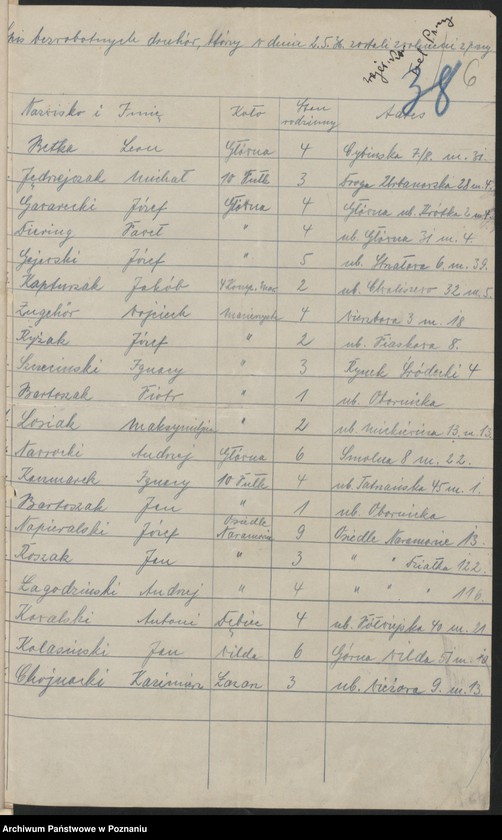 bezrobotnych druhów, którzy w dnia 2.5.36 zostali zwolnieni z pracy
38 6
Nazwisko i Imię Koło Stan rodzinny Adres
Betka Leon Główna 4 Cybińska 7/8. m. 31
Jędrzejczak Michał 10 Pułk 3 Droga Urbanowska 28 m. 4.
Gawarecki Józef Główna 4 Główna ul. Krótka 2. m. 4.
Diering Paweł " 4 ul. Główna 31 m. 4.
Gajerski Józef " 5 ul. 6. m. 39.
Kapturzak Jakób 2 ul. Chaliszewo 32 m. 5.
Wojciech 4 3 m. 18
Kyżak Józef " 2 ul. Piaskowa 8.
Szuciński Ignacy " 3 Rynek Śródecki 4
Bartoszak Piotr " 1 ul. Obornicka
Losiak " 2 ul. Mickiewicza 13. m. 13.
Nawrocki Andrzej Główna 6 Smolna 8 m. 22.
Kaczmarek Ignacy 10 Pułk 4 ul. Tatrzańska 45 m. 1.
Bartoszak Jan " 1 ul. Obornicka
Napieralski Józef Osiedle Naramowice 9 Osiedle Naramowice 13.
Koszak Jan " 3 " " Działka 122.
Łagodziński Andrzej " 4 " " " 116.
Kowalski Antoni Dębiec 4 ul. Półwiejska 40 m. 21
Kolasiński Jan Wilda 6 Górna Wilda 51 m. 10
Chojnacki Kazimierz Łazarz 3 ul. 9. m. 13
Archiwum Państwowe w Poznaniu